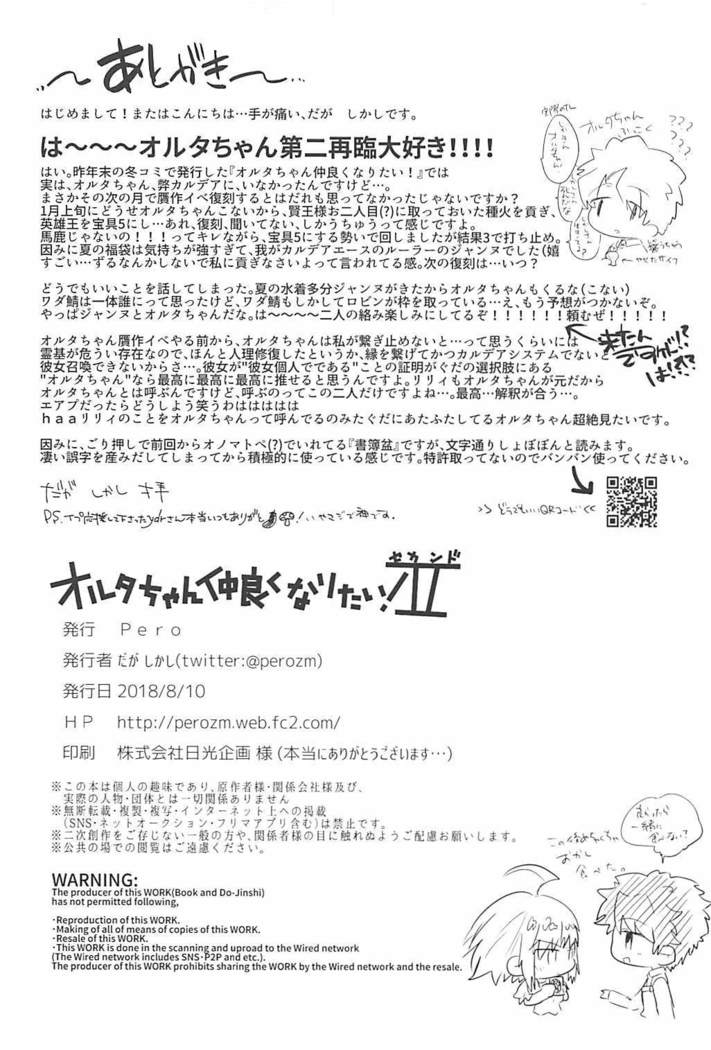 ～あとがき～
はじめまして！またはこんにちは…手が痛い、だが　しかしです。
は～～～オルタちゃん第二再臨大好き!!!!
はい。昨年末の冬コミで発行した『オルタちゃん仲良くなりたい！』では
実は、オルタちゃん、弊カルデアに、いなかったんですけど…。
まさかその次の月で贋作イベ復刻するとはだれも思ってなかったじゃないですか？
1月上旬にどうせオルタちゃんこないから、賢王様お二人目(?)に取っておいた種火を貢ぎ、
英雄王を宝具5にし…あれ、復刻、聞いてない、しかうちゅうって感じですよ。
馬鹿じゃないの！！！ってキレながら、宝具5にする勢いで回しましたが結果3で打ち止め。
因みに夏の福袋は気持ちが強すぎて、我がカルデアエースのルーラーのジャンヌでした(嬉
すごい…ずるなんかしないで私に貢ぎなさいよって言われてる感。次の復刻は…いつ？
どうでもいいことを話してしまった。夏の水着多分ジャンヌがきたからオルタちゃんもくるな（こない）
ワダ鯖は一体誰にって思ったけど、ワダ鯖もしかしてロビンが枠を取っている…え、もう予想がつかないぞ。
やっぱジャンヌとオルタちゃんだな。は～～～～二人の絡み楽しみにしてるぞ！！！！！！頼むぜ！！！！！
来たんですけど!?
は!??
オルタちゃん贋作イベやる前から、オルタちゃんは私が繋ぎ止めないと…って思うくらいには
霊基が危うい存在なので、ほんと人理修復したというか、縁を繋げてかつカルデアシステムでないと
彼女召喚できないからさ…。彼女が"彼女個人でである"ことの証明がぐだの選択肢にある
"オルタちゃん"なら最高に最高に最高に推せると思うんですよ。リリィもオルタちゃんが元だから
オルタちゃんとは呼ぶんですけど、呼ぶのってこの二人だけですよね…。最高…解釈が合う…。
エアプだったらどうしよう笑うわはははははは
ｈａａリリィのことをオルタちゃんって呼んでるのみたぐだにあたふたしてるオルタちゃん超絶見たいです。
因みに、ごり押しで前回からオノマトペ(?)でいれてる『書簿盆』ですが、文字通りしょぼぼんと読みます。
凄い誤字を産みだしてしまってから積極的に使っている感じです。特許取ってないのでバンバン使ってください。
だが しかし 拝
>> どうでもいいQRコード <<
オルタちゃん仲良くなりたい！Ⅱ
セカンド
発行　Ｐｅｒｏ
発行者 だが しかし(twitter:@perozm)
発行日 2018/8/10
ＨＰ　http://perozm.web.fc2.com/
印刷　株式会社日光企画 様 (本当にありがとうございます…)
※この本は個人の趣味であり、原作者様・関係会社様及び、
実際の人物・団体とは一切関係ありません
※無断転載・複製・複写・インターネット上への掲載
（SNS・ネットオークション・フリマアプリ含む）は禁止です。
※二次創作をご存じない一般の方や、関係者様の目に触れぬようご配慮お願いします。
※公共の場での閲覧はご遠慮ください。
WARNING:
The producer of this WORK(Book and Do-Jinshi)
has not permitted following,
・Reproduction of this WORK.
・Making of all of means of copies of this WORK.
・Resale of this WORK.
・This WORK is done in the scanning and uproad to the Wired network
(The Wired network includes SNS・P2P and etc.).
The producer of this WORK prohibits sharing the WORK by the Wired network and the resale.